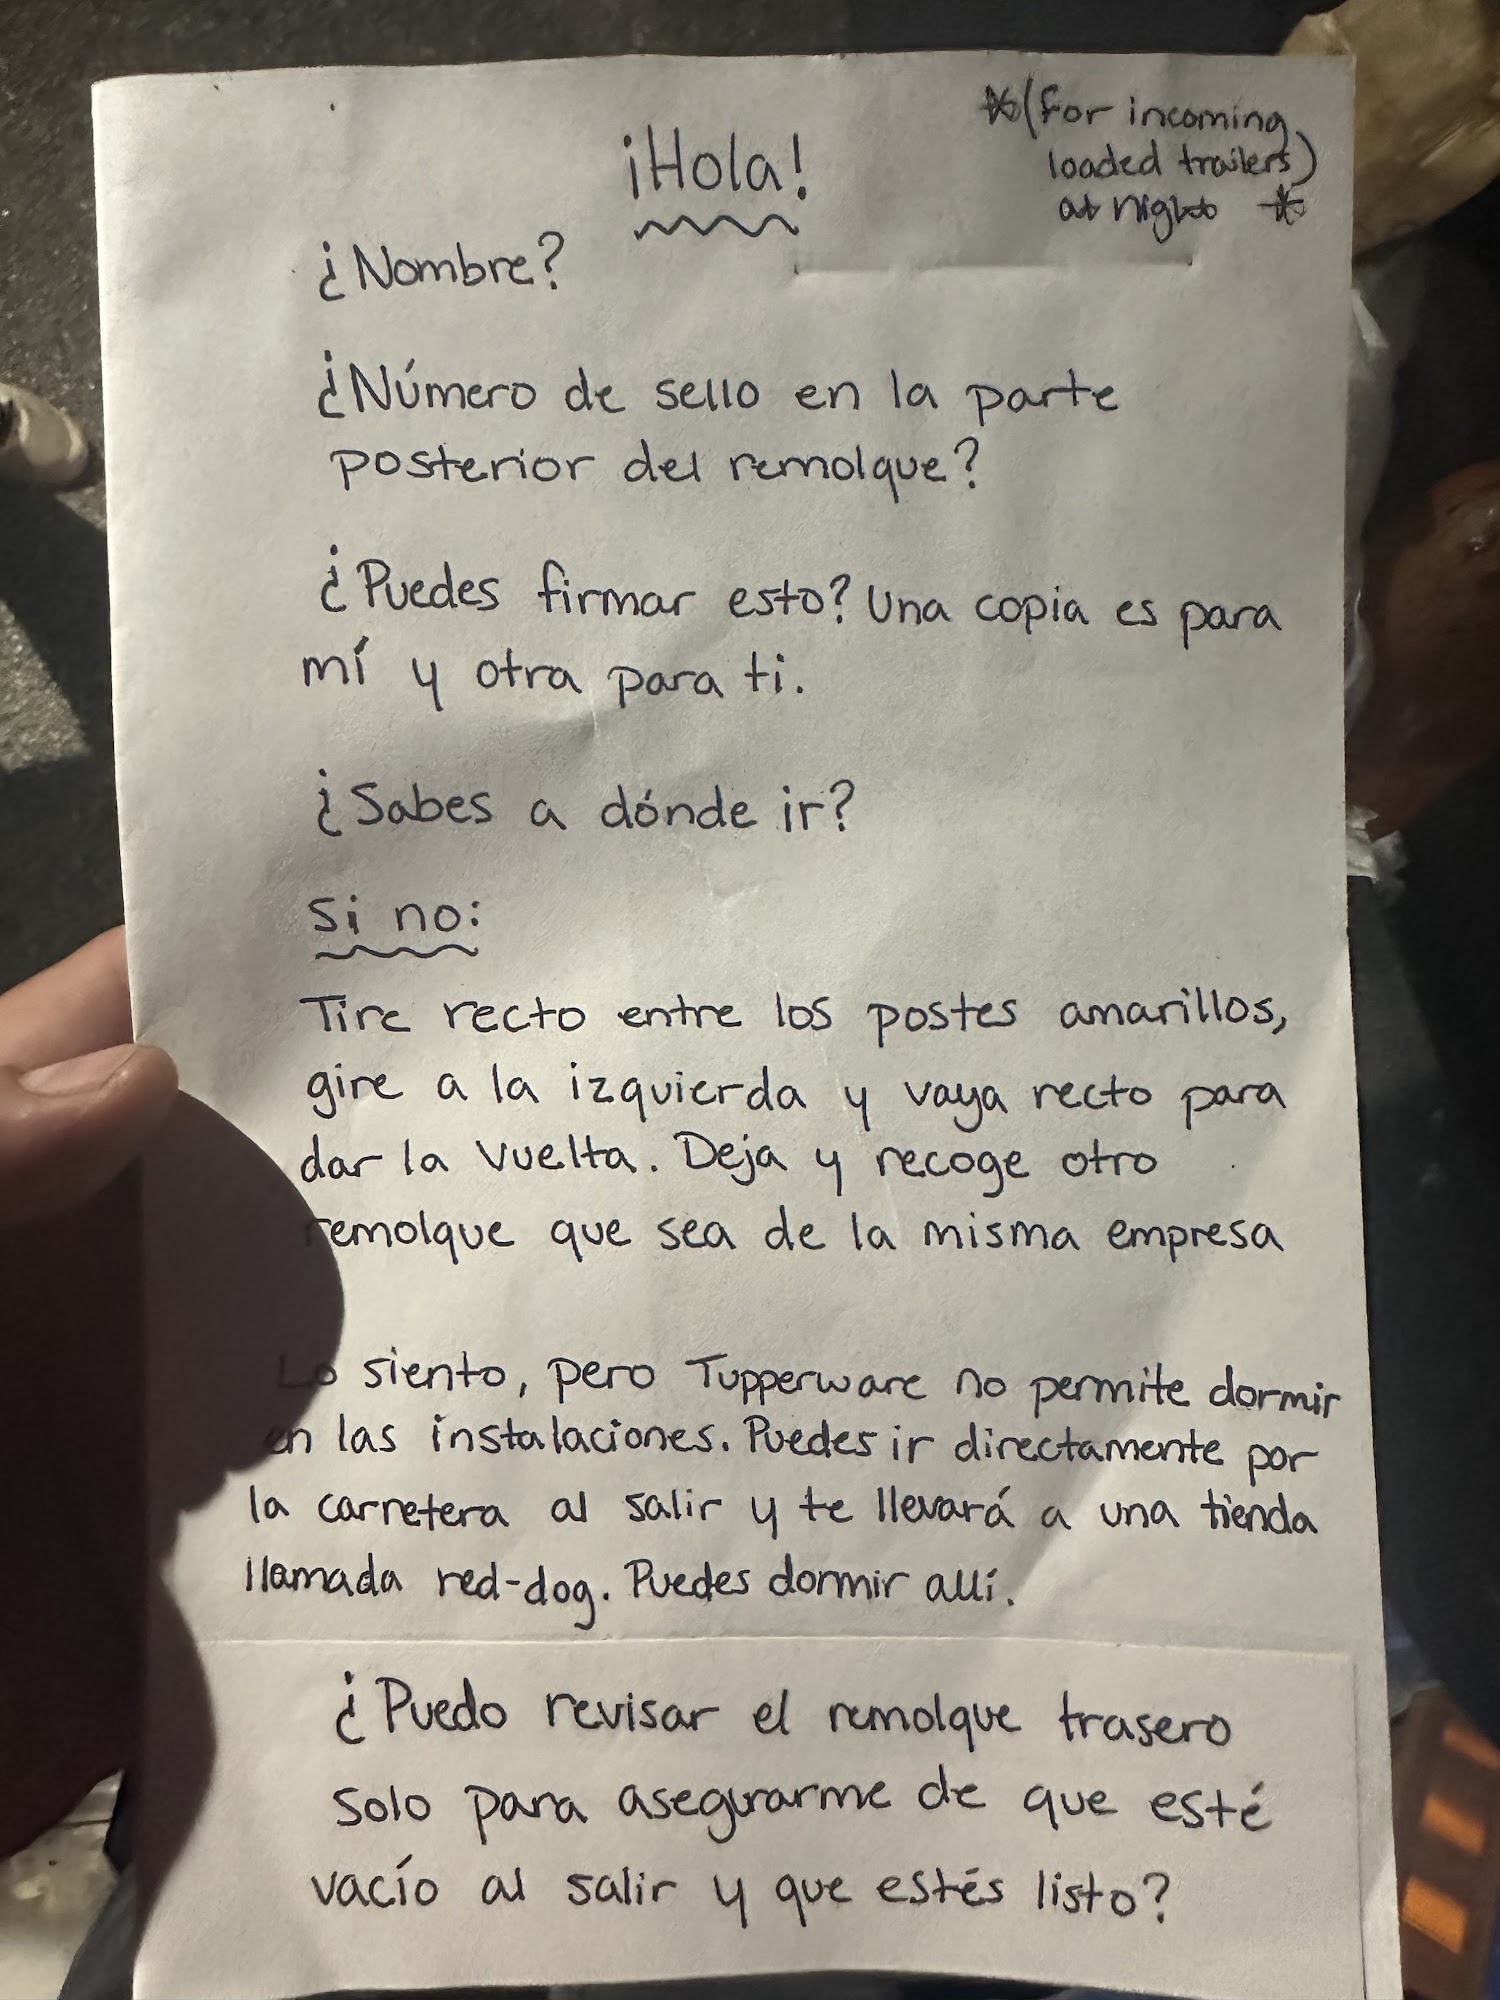 *(For incoming
loaded trailers)
at night *
¡Hola!
¿Nombre?
¿Número de sello en la parte
posterior del remolque?
¿Puedes firmar esto? Una copia es para
mí y otra para ti.
¿Sabes a dónde ir?
Si no:
Tire recto entre los postes amarillos,
gire a la izquierda y vaya recto para
dar la vuelta. Deja y recoge otro
remolque que sea de la misma empresa
Lo siento, pero Tupperware no permite dormir
en las instalaciones. Puedes ir directamente por
la carretera al salir y te llevará a una tienda
llamada red-dog. Puedes dormir allí.
¿Puedo revisar el remolque trasero
solo para asegurarme de que esté
vacío al salir y que estés listo?